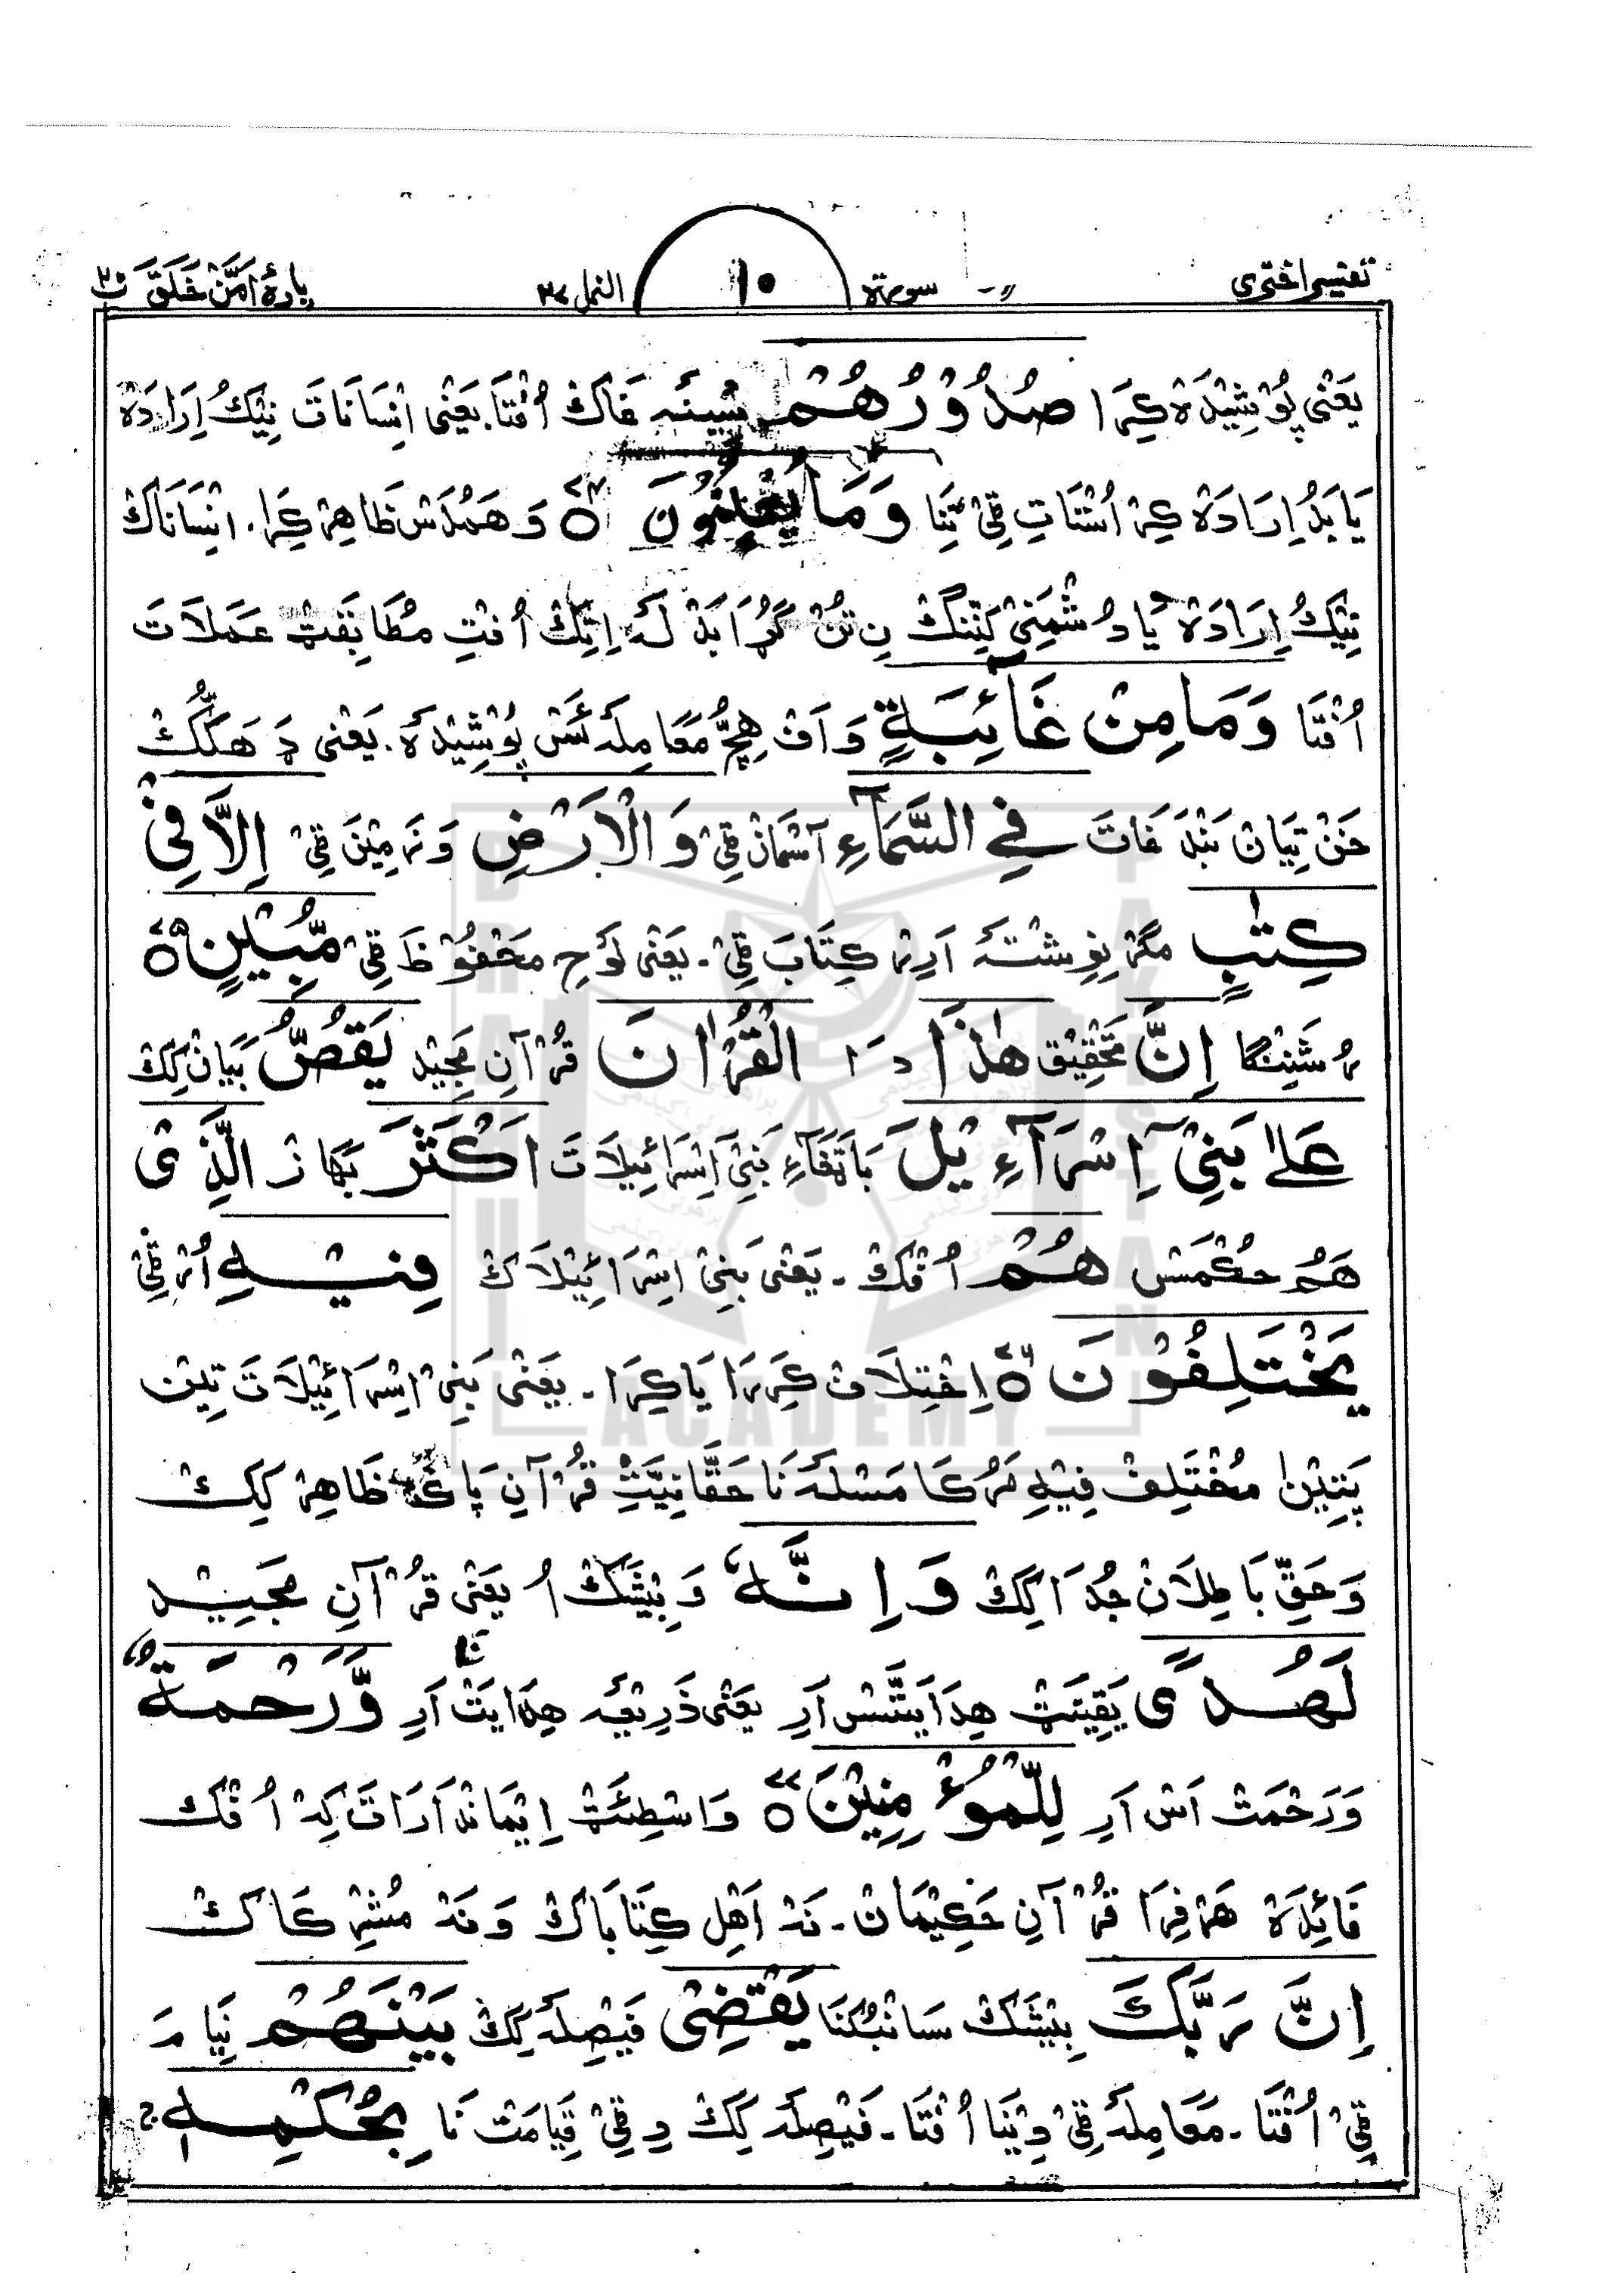 تفسیر اختری سورة ۱۰ النمل ۲۷ پارۀ اَمَّنْ خَلَقَ ۲۰
یَعْنٖی پُوْشِیْدَہ کِرَا صُدُوْرُهُمْ سِینَہ غَاکْ اُفْتَا. یَعْنٖی اِنْسَانَاتَ نِیْکُ اِرَادَہ
یَا بَدُ اِرَادَہ کِہْ اُسْتَاتِ ٹِیْ تِنَا وَمَا يُعْلِنُوْنَ ۝۷۴ وَ هَمُدَسْ ظَاهِرْ کِرَا. اِنْسَانَاکْ
نِیْکُ اِرَادَہ یَا دُشْمَنِیْ کَنِّنْگْ نِ تَنْ گُڑَا بَدْ لَہ اِتِکْ اُفْتِ مُطَابِقَتْ عَمَلَاتَ
اُفْتَا وَمَا مِنْ غَآئِبَةٍ وَ اَفْ هِچُّ مُعَامِلَہ ئَسْ پُوْشِیْدَہ. یَعْنٖی دَ هَکُّکْ
خَنْ تِیَانْ بَنْدَ غَاتَ فِي السَّمَآءِ آسْمَانْ ٹِیْ وَ الْاَرْضِ وَ زَمِیْنَ ٹِیْ اِلَّا فِيْ
كِتٰبٍ مَگَرْ نِوِشْتَہ اَرِٹْ کِتَابَ ٹِیْ. یَعْنٖی لَوْحِ مَحْفُوْظَ ٹِیْ مُّبِيْنٍ ۝۷۵
رُشَنِنْگَا اِنَّ تَحْقِیْق هٰذَا دَا الْقُرْاٰنَ قُرْآنِ مَجِیْد يَقُصُّ بَیَانْ کِکْ
عَلٰى بَنِيْٓ اِسْرَآءِيْلَ بَاتَغَآءِ بَنِیْ اِسْرَائِیْلَاتَ اَكْثَرَ بَهَازْ الَّذِيْ
هَمُ حُکْمَسْ هُمْ اُفْکْ. یَعْنٖی بَنِیْ اِسْرَائِیْلَاکْ فِيْهِ اُرْٹِیْ
يَخْتَلِفُوْنَ ۝۷۶ اِخْتِلَافْ کَرِرَا یَا کِرَا. یَعْنٖی بَنِیْ اِسْرَائِیْلَاتَ تِیْن
پَتِیْن مُخْتَلِفْ فِیْہِ مَرُکَا مَسْلَہ نَا حَقَّانِیَّتِ قُرْآنِ پَاکْ ظَاهِرْ کِکْ
وَ حَقِّ بَاطِلَانْ جُدَا کِکْ وَاِنَّهٗ وَ بِیْشَکْ اُ یَعْنٖی قُرْآنِ مَجِیْد
لَهُدًى یَقِیْنَتْ هِدَایَتَسْ اَرِ یَعْنٖی ذَرِیْعَہ نَا هِدَایَتْ اَرِ وَّرَحْمَةٌ
وَ رَحْمَتْ اَسْ اَرِ لِّلْمُؤْمِنِيْنَ ۝۷۷ وَاسْطِئَتْ اِیْمَانْدَارَاتَ کِہْ اُفْکْ
فَائِدَہ هَرْفِرَا قُرْآنِ حَکِیْمَانْ. نَہْ اَهْلِ کِتَابَاکْ وَ نَہْ مُشْرِکَاکْ
اِنَّ رَبَّكَ بِیْشَکْ سَائِبُکْنَا يَقْضِيْ فَیْصِلَہ کِکْ بَيْنَهُمْ نِیَامَ
ٹِیْ اُفْتَا. مَعَامِلَہ ٹِیْ دِیْنَا اُفْتَا. فَیْصِلَہ کِکْ دِ ٹِیْ قِیَامَتْ نَا بِحُكْمِهٖ ج
BRAHUI ACADEMY PAKISTAN